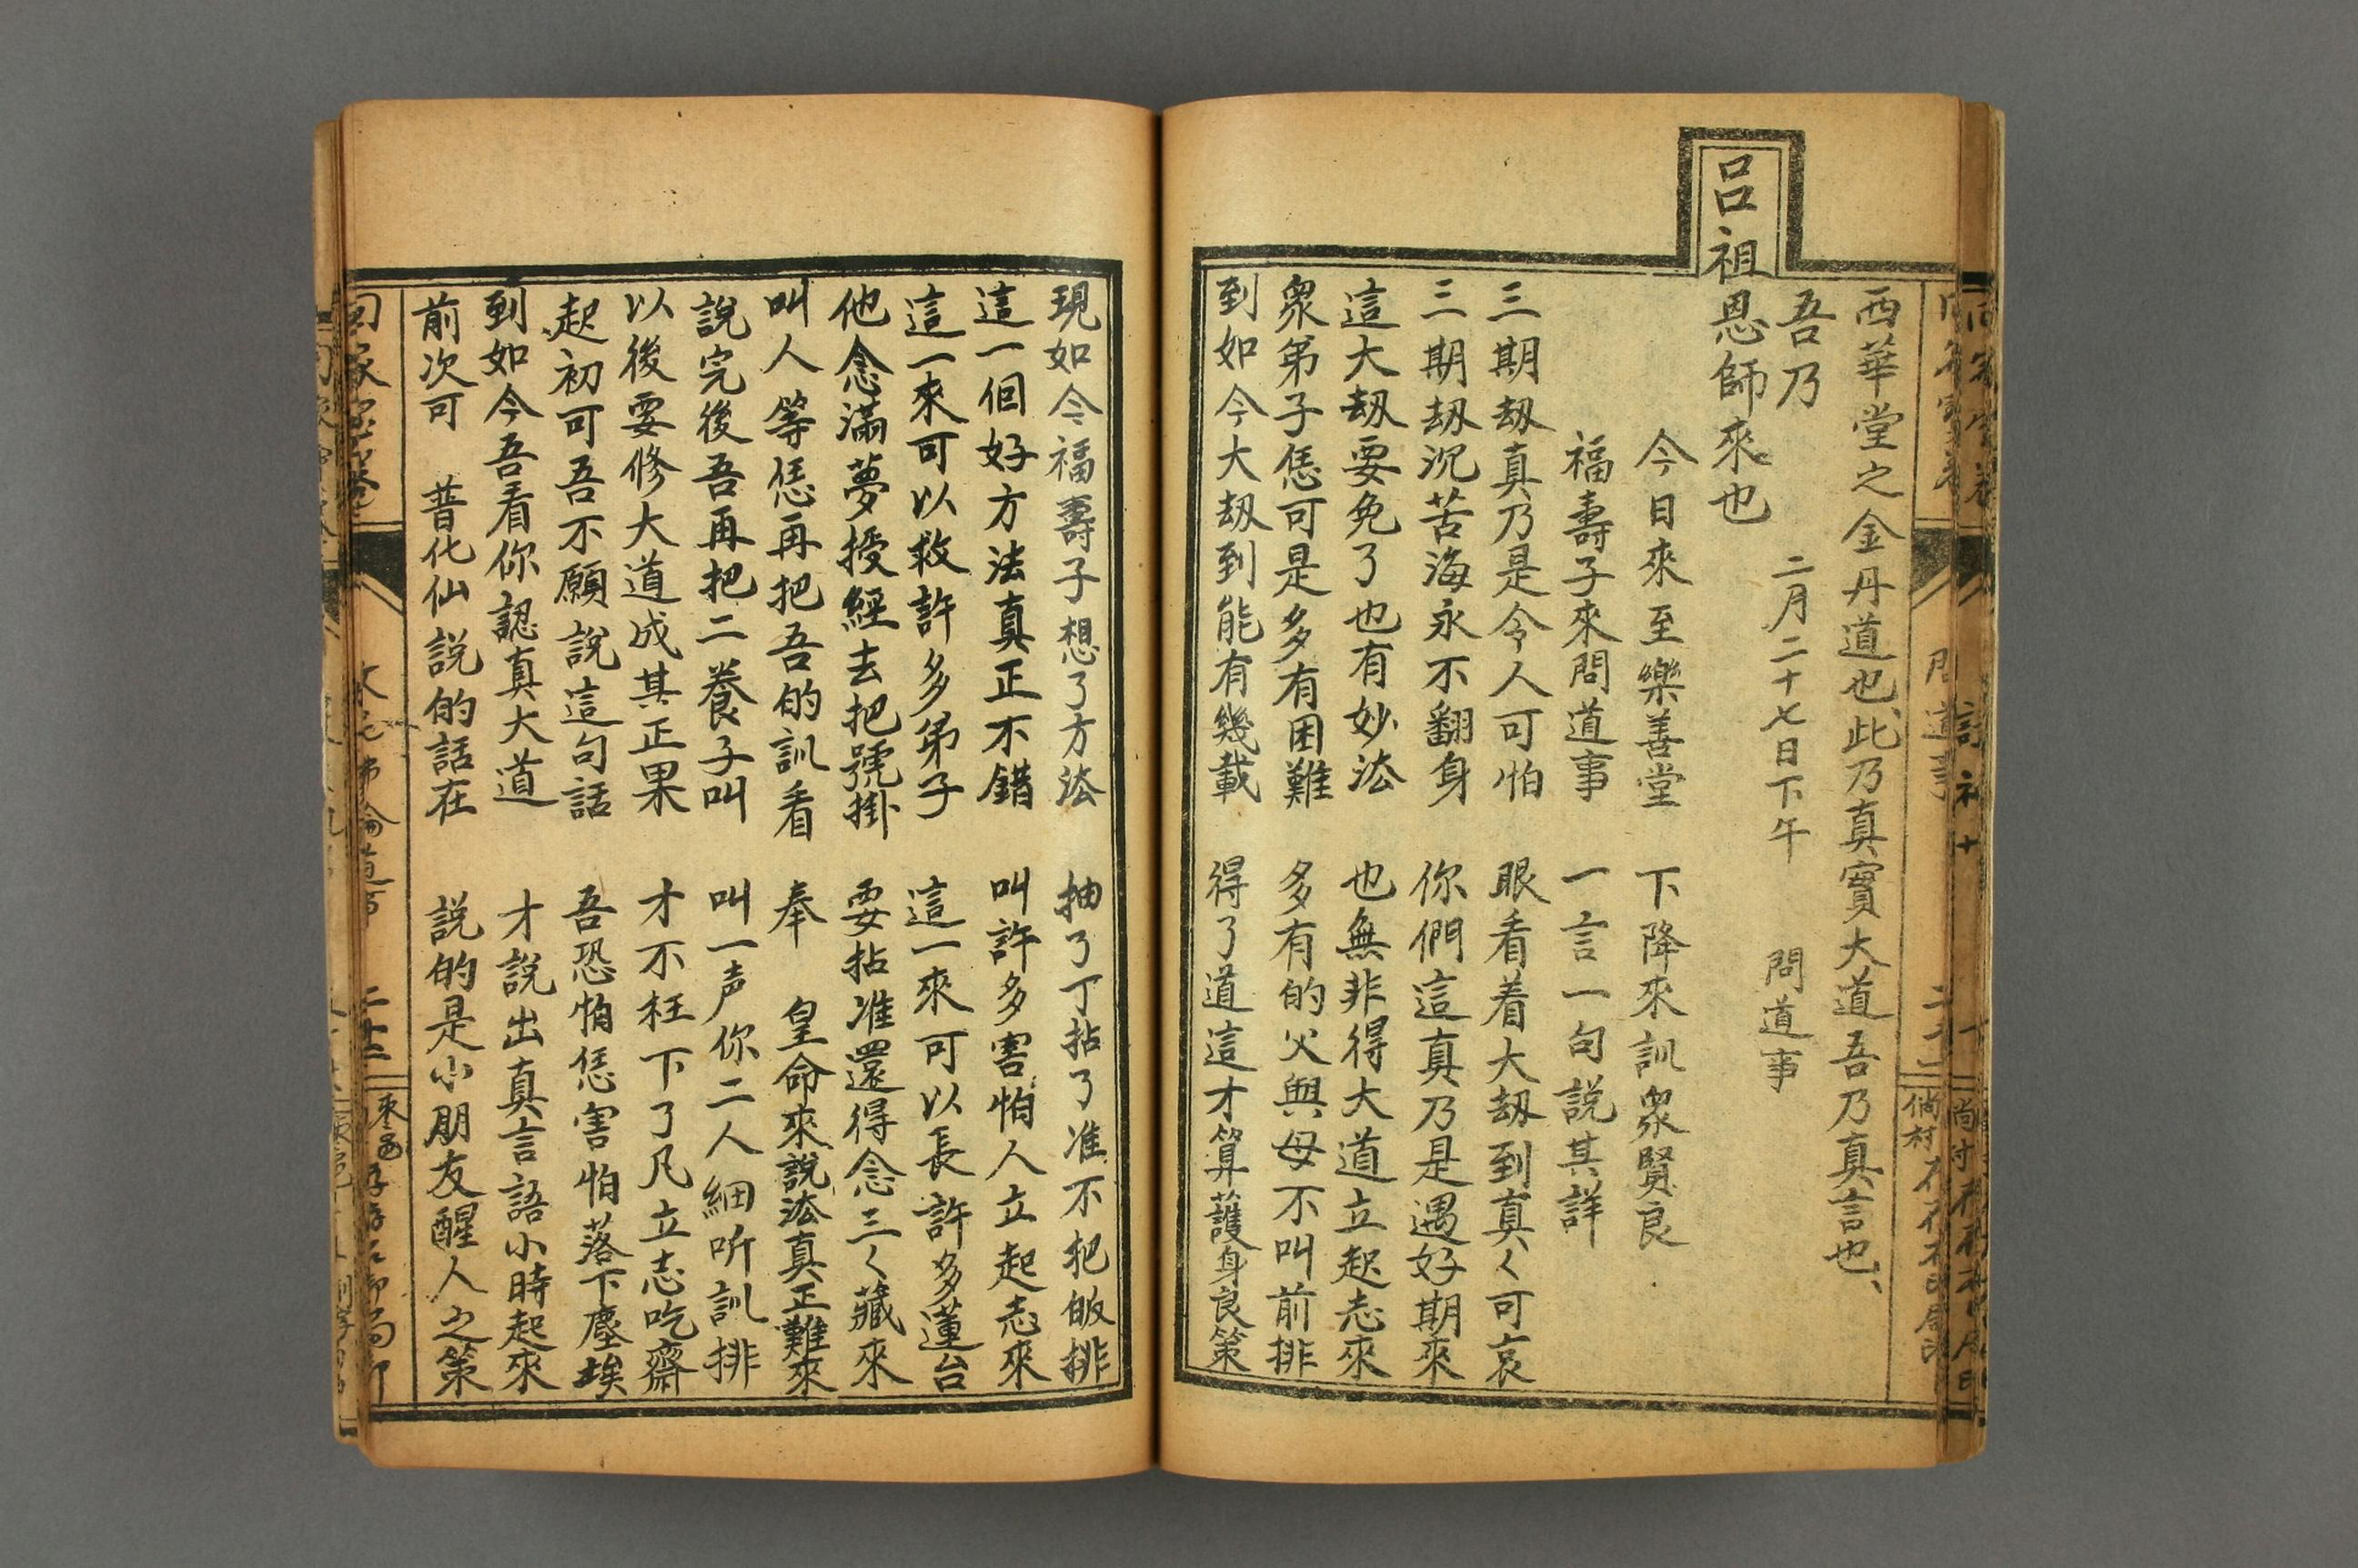 西華堂之金丹道也、此乃真實大道吾乃真言也、
吾乃 二月二十七日下午 問道事
呂祖恩師來也
今日來至樂善堂 下降來訓眾賢良
福壽子來問道事 一言一句說其詳
三期刼真乃是令人可怕 眼看着大刼到真〻可哀
三期刼沉苦海永不翻身 你們這真乃是遇好期來
這大刼要免了也有妙法 也無非得大道立起志來
眾弟子恁可是多有困難 多有的父與母不叫前排
到如今大刼到能有幾載 得了道這才算護身良策
現如今福壽子想了方法 抽了丁拈了准不犯皈排
這一個好方法真正不錯 叫許多害怕人立起志來
這一來可以救許多弟子 這一來可以長許多蓮台
他念滿夢授經去把號掛 要拈准還得念三〻藏來
叫人等恁再把吾的訓看 奉 皇命來說法真正難來
說完後吾再把二養子叫 叫一声你二人細听訓排
以後要修大道成其正果 才不枉下了凡立志吃齋
起初可吾不願說這句話 吾恐怕恁害怕落下塵埃
到如今吾看你認真大道 才說出真言語小時起來
前次可 普化仙說的話在 說的是小朋友醒人之策